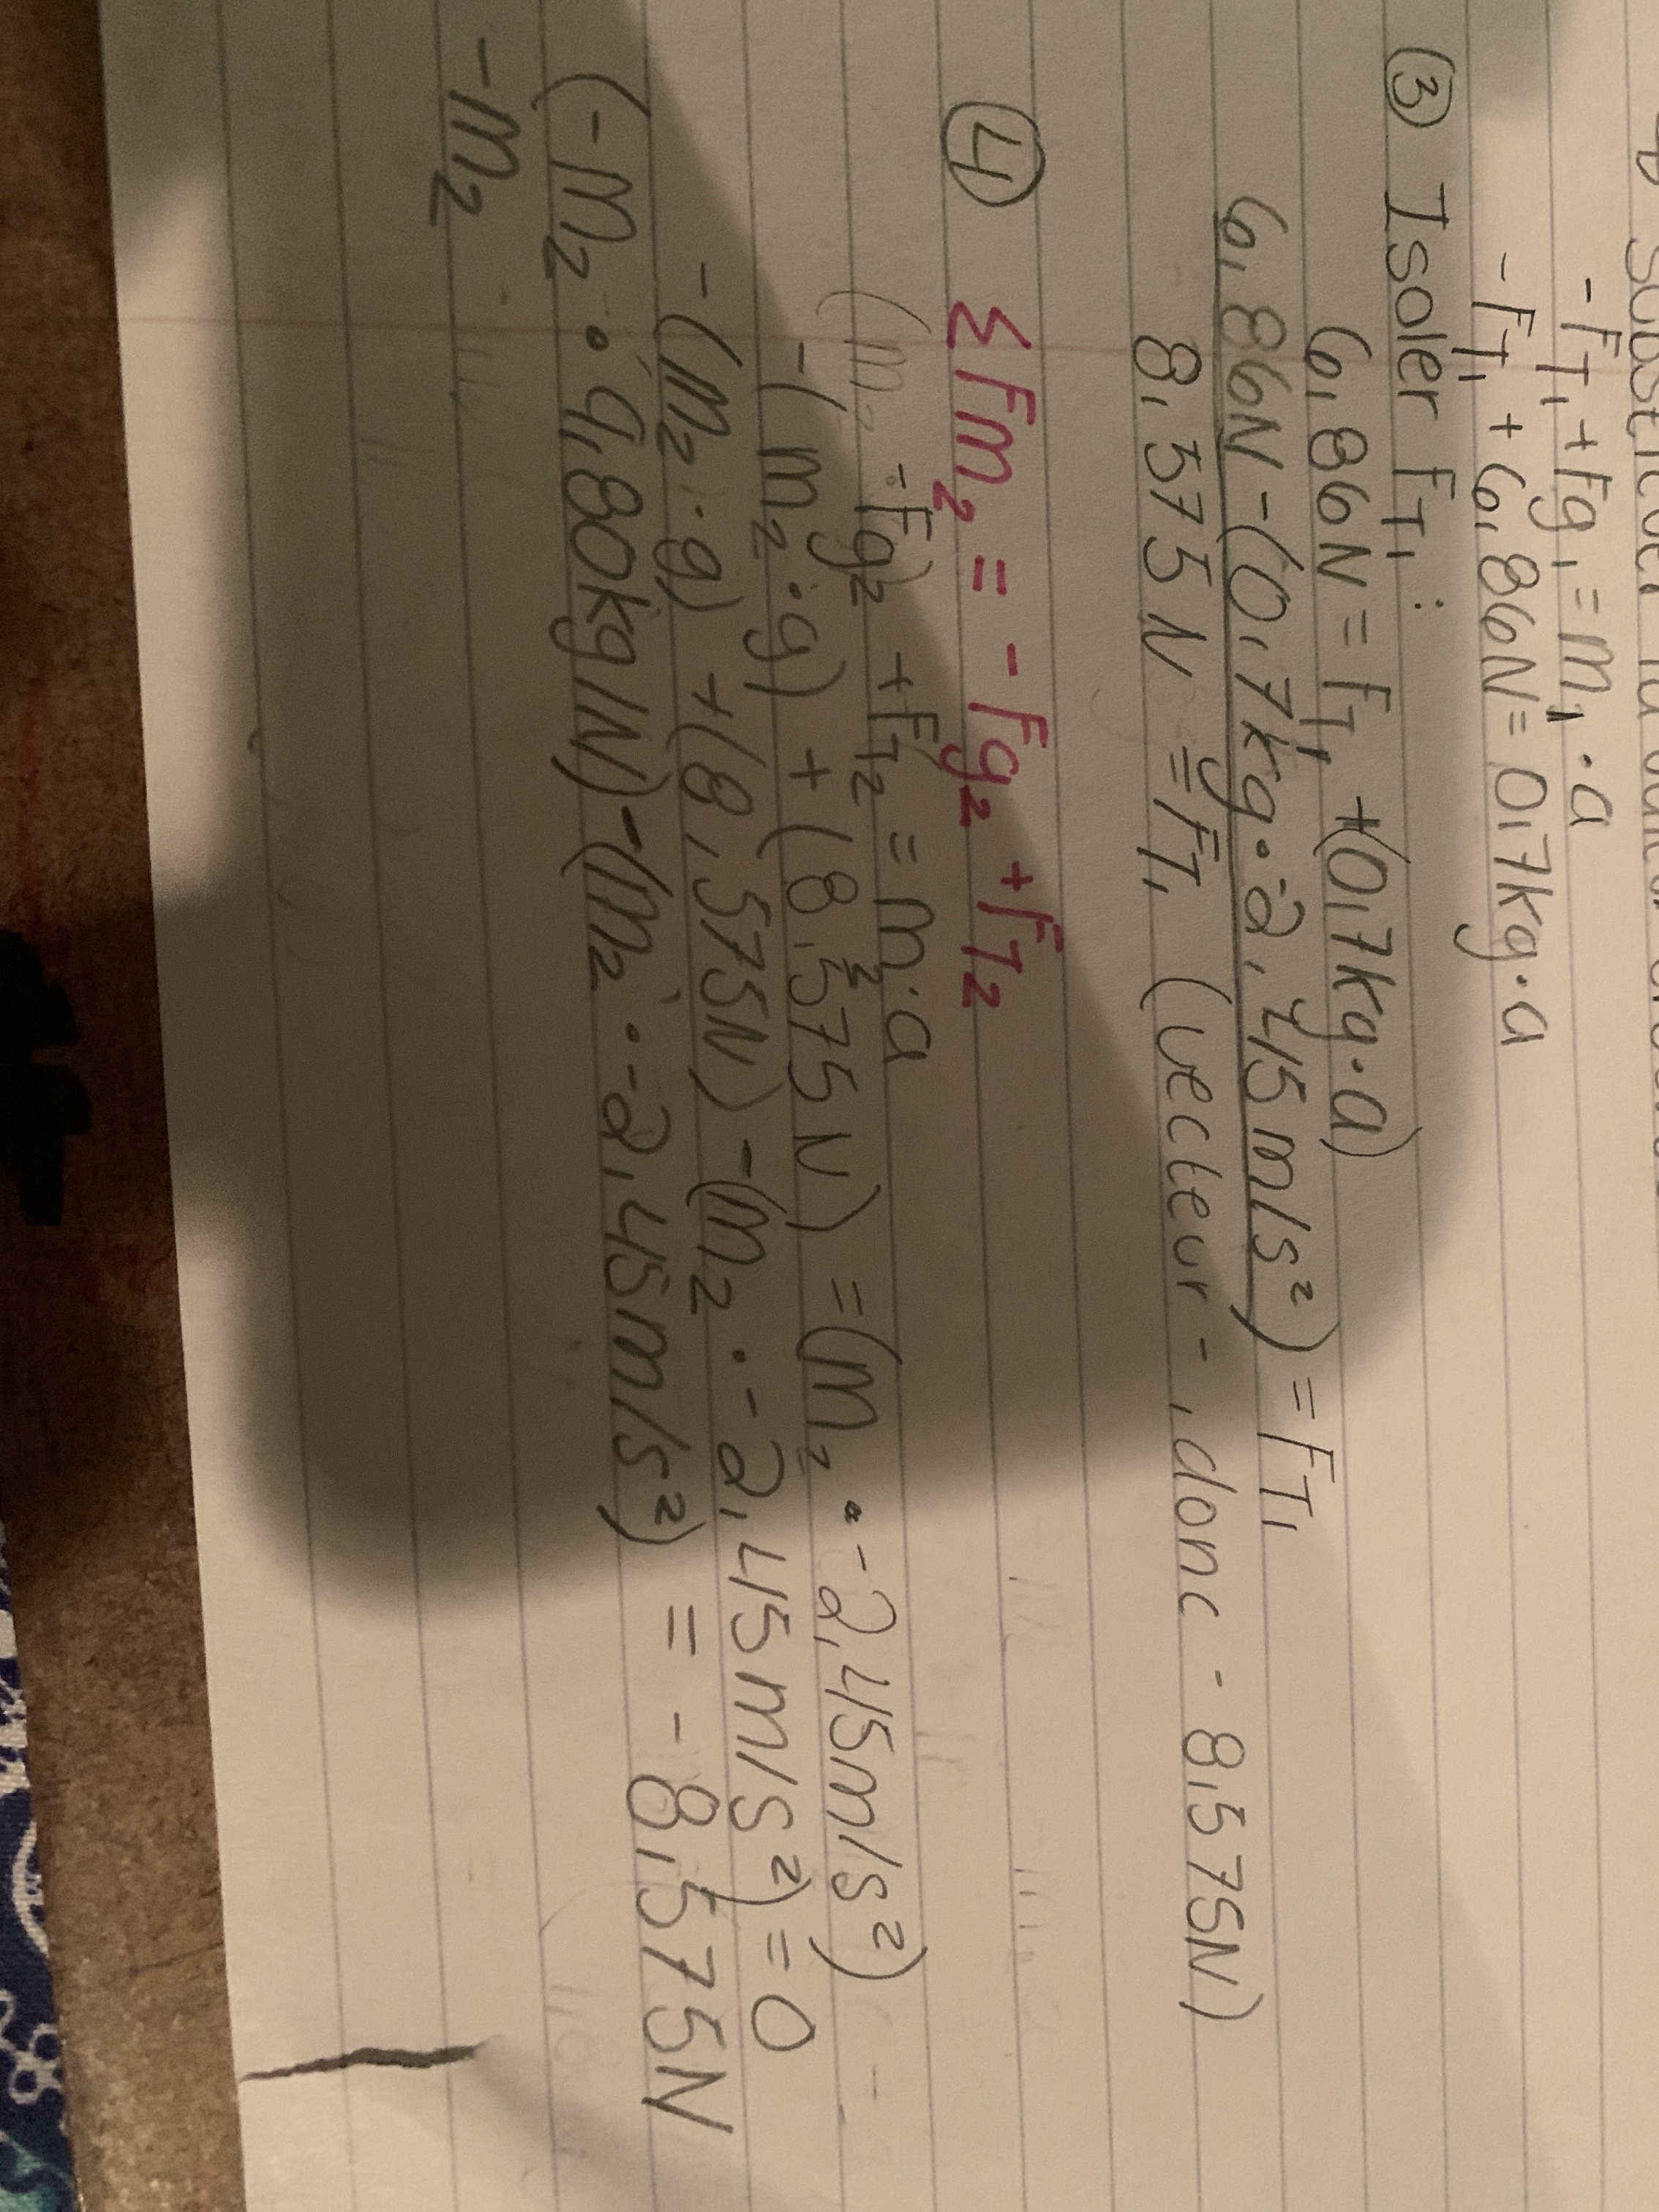 -FT1 + Fg1 = m1 · a
-FT1 + 6,86N = 0,7kg · a
③ Isoler FT1 :
6,86N = FT1 + (0,7kg · a)
6,86N - (0,7kg · -2,45m/s²) = FT1
8,575N = FT1 (vecteur -, donc -8,575N)
④ ΣFm2 = -Fg2 + FT2
-Fg2 + FT2 = m2 · a
-(m2 · g) + (8,575N) = (m2 · -2,45m/s²)
-(m2 · g) + (8,575N) - (m2 · -2,45m/s²) = 0
(-m2 · 9,80kg/N) - (m2 · -2,45m/s²) = -8,575N
-m2